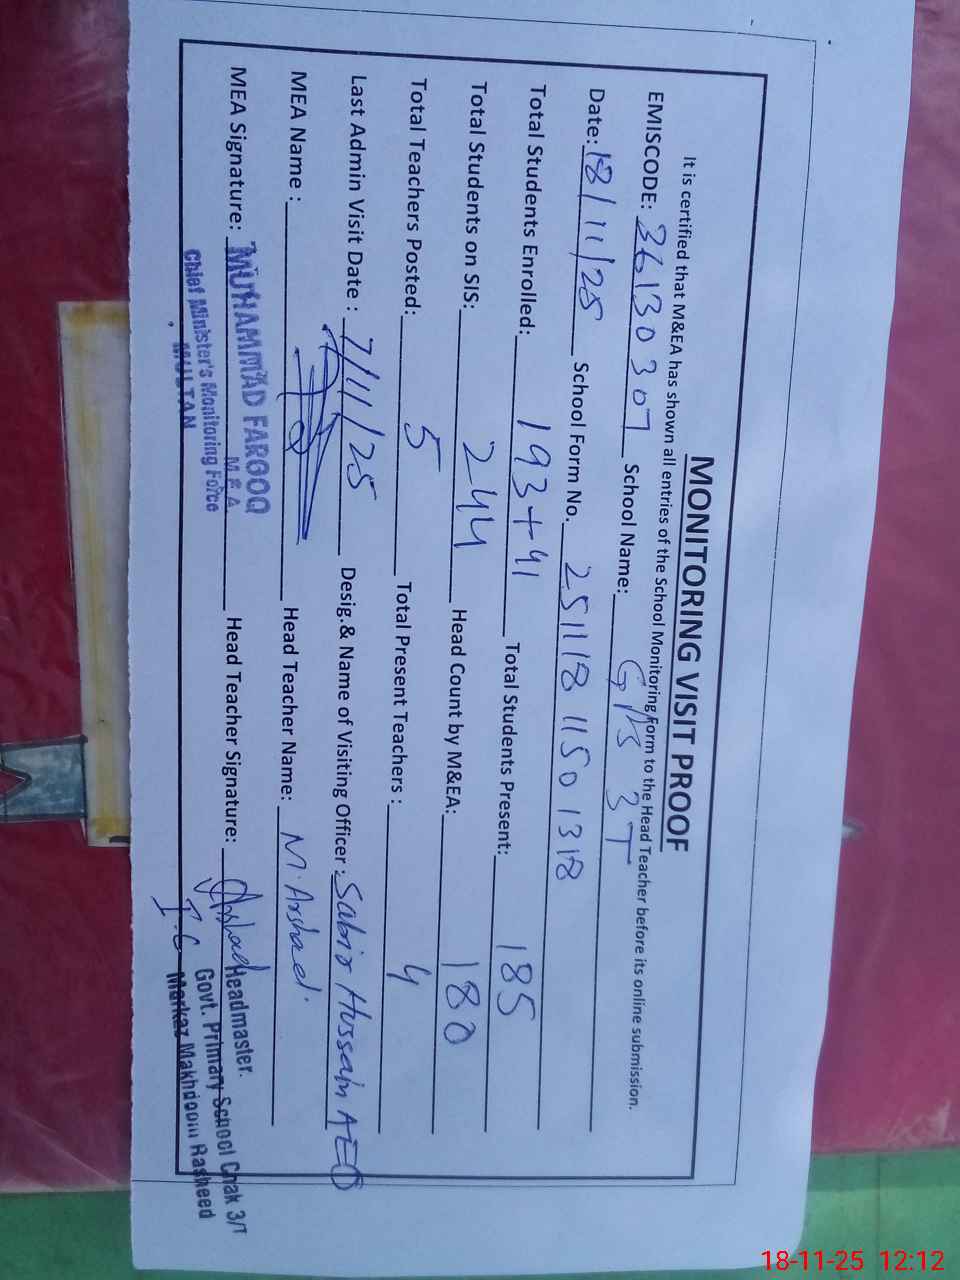 MONITORING VISIT PROOF
It is certified that M&EA has shown all entries of the School Monitoring Form to the Head Teacher before its online submission.
EMISCODE: 36130307 School Name: GPS 3T
Date: 18/11/25 School Form No. 251118 11501318
Total Students Enrolled: 193+41 Total Students Present: 185
Total Students on SIS: 244 Head Count by M&EA: 180
Total Teachers Posted: 5 Total Present Teachers: 4
Last Admin Visit Date: 7/11/25 Desig.& Name of Visiting Officer: Sabir Hussain AEO
MEA Name: Head Teacher Name: M. Arshad.
MEA Signature: Head Teacher Signature: Arshad
MUHAMMAD FAROOQ
M E A
Chief Minister's Monitoring Force
MULTAN
I.C
Headmaster.
Govt. Primary School Chak 3/T
Markaz Makhdoom Rasheed
18-11-25 12:12